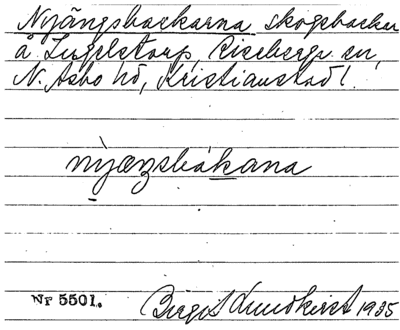 Nyängsbackarna skogsbackar
å Ingelstorp, Riseberga sn,
N. Åsbo hd, Kristianstad l.
nỳæŋsbákana
Nr 5501. Birgit Lundkvist 1935